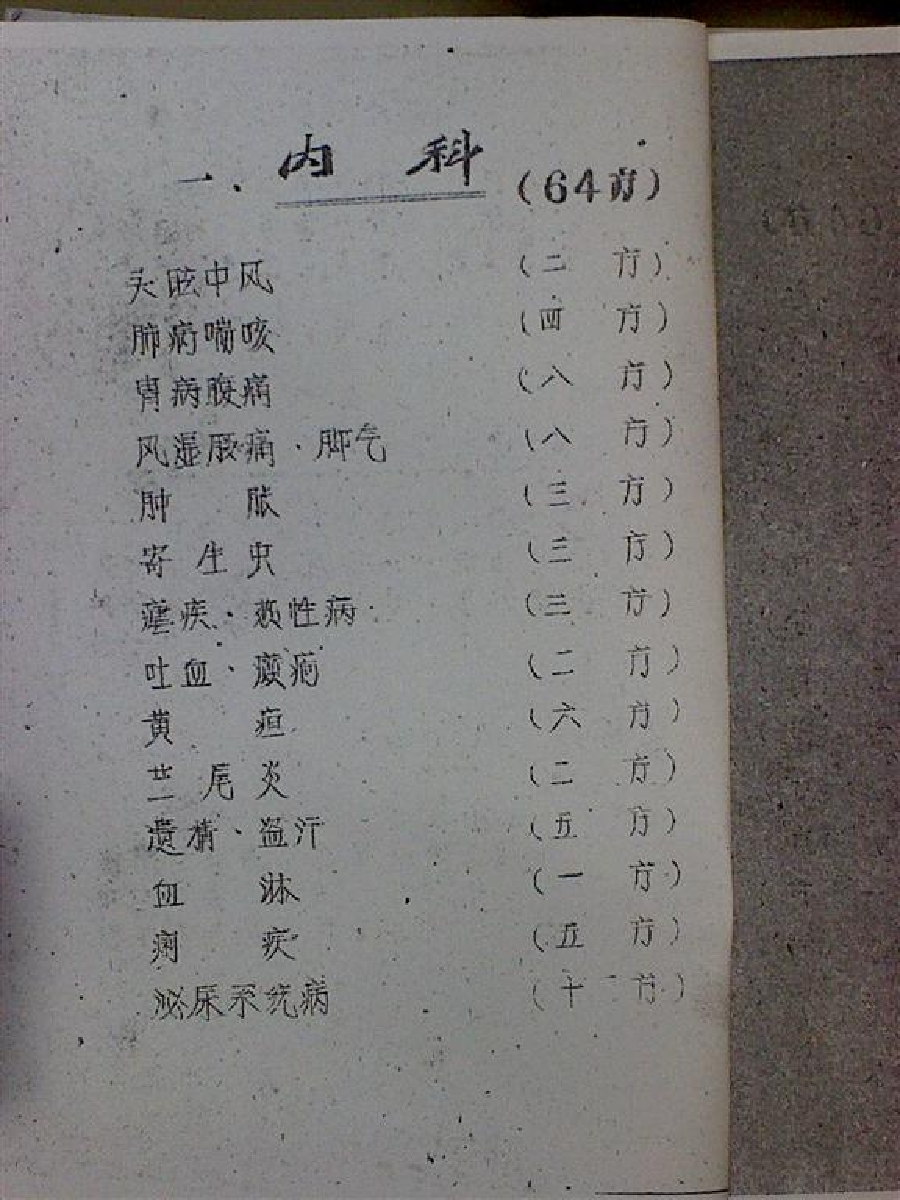 一、内科(64方)
头眩中风(二方)
肺病喘咳(四方)
胃病腹痛(八方)
风湿腰痛·脚气(八方)
肿胀(三方)
寄生虫(三方)
疟疾·热性病(三方)
吐血·癫疤(二方)
黄疸(六方)
兰尾炎(二方)
遗精·盗汗(五方)
血淋(一方)
痢疾(五方)
泌尿系统病(十一方)